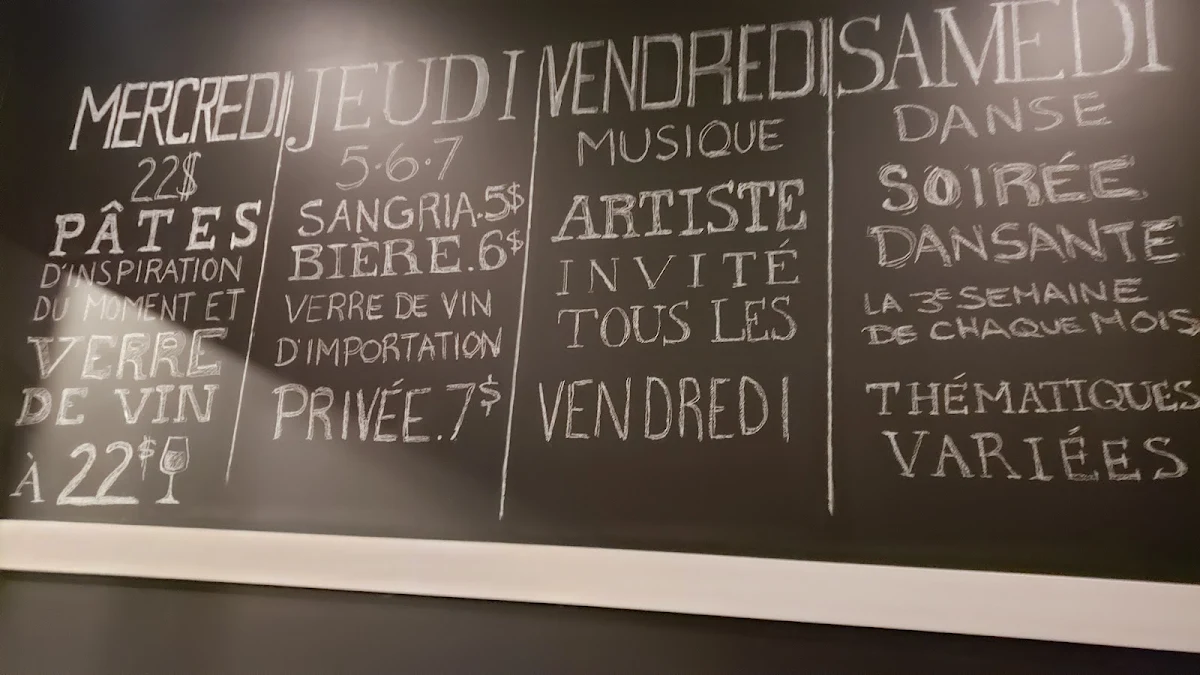 MERCREDI
22$
PÂTES
D'INSPIRATION
DU MOMENT ET
VERRE
DE VIN
À 22$
JEUDI
5·6·7
SANGRIA.5$
BIÈRE.6$
VERRE DE VIN
D'IMPORTATION
PRIVÉE.7$
VENDREDI
MUSIQUE
ARTISTE
INVITÉ
TOUS LES
VENDREDI
SAMEDI
DANSE
SOIRÉE
DANSANTE
LA 3E SEMAINE
DE CHAQUE MOIS
THÉMATIQUES
VARIÉES